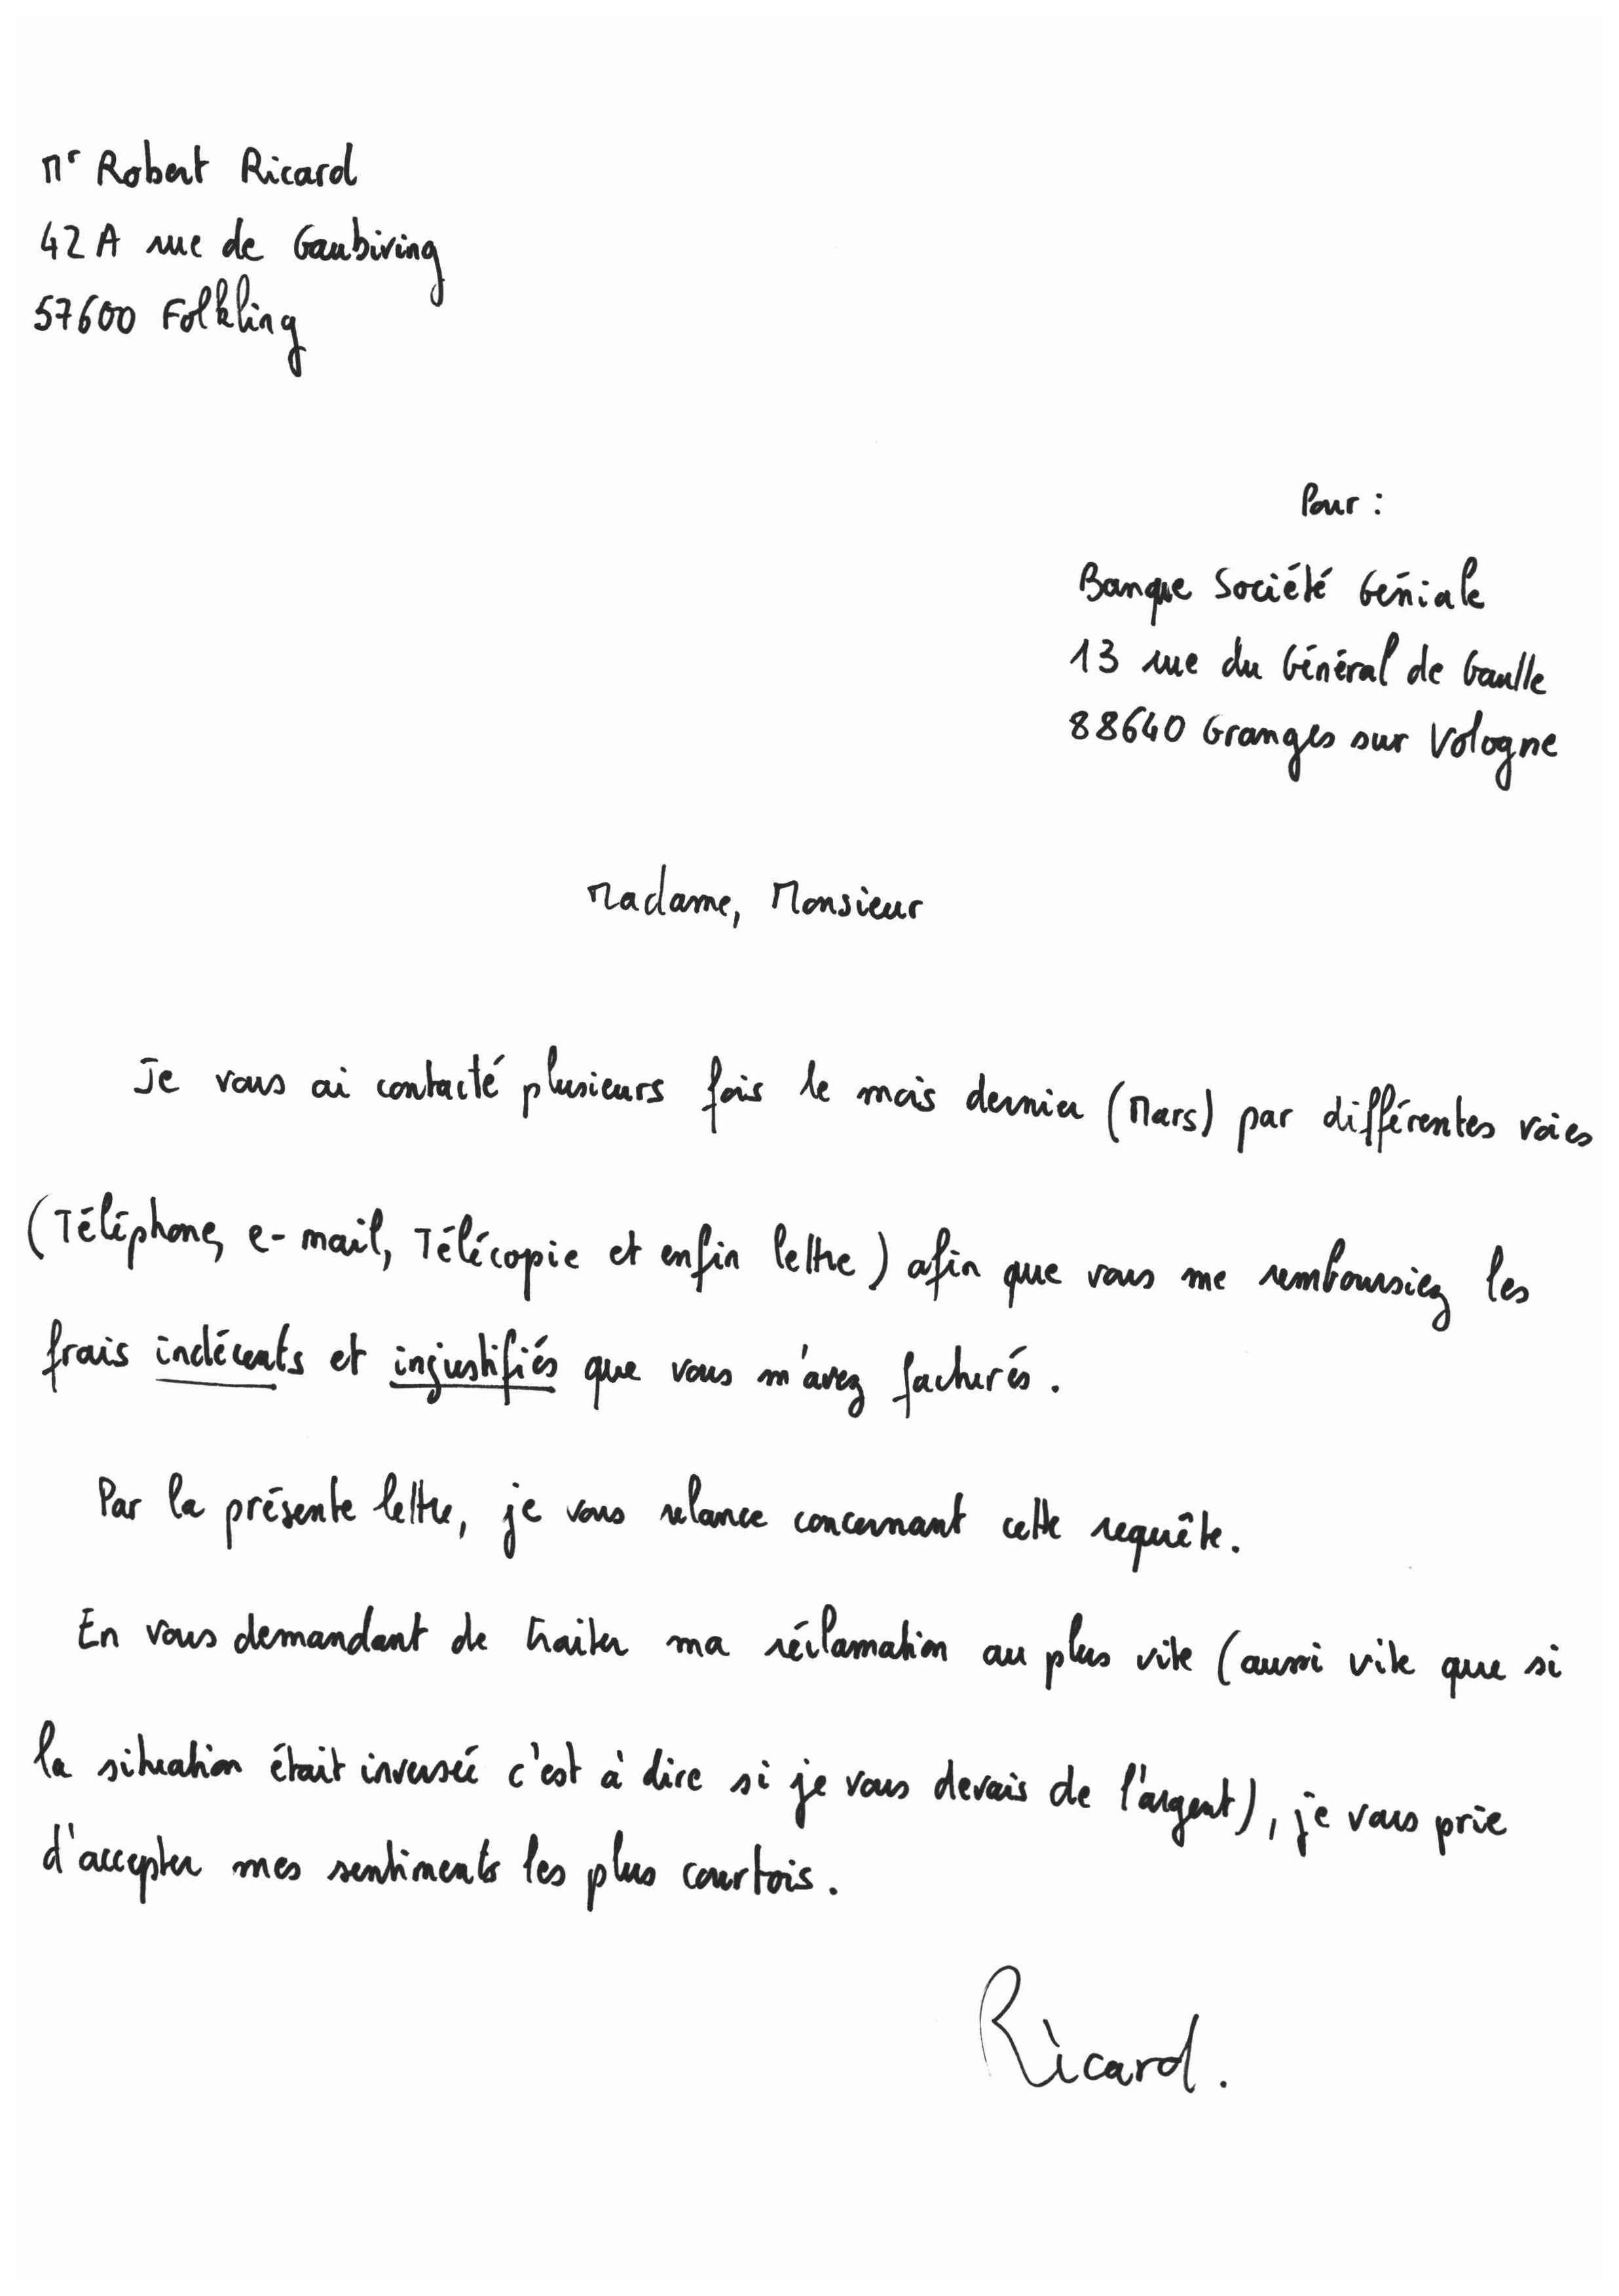 Mr Robert Ricard
42A rue de Gaubiving
57600 Folkling
Pour :
Banque Société Géniale
13 rue du Général de Gaulle
88640 Granges sur Vologne
Madame, Monsieur
Je vous ai contacté plusieurs fois le mois dernier (Mars) par différentes voies
(Téléphone, e-mail, Télécopie et enfin lettre) afin que vous me remboursiez les
frais indécents et injustifiés que vous m'avez facturés.
Par la présente lettre, je vous relance concernant cette requête.
En vous demandant de traiter ma réclamation au plus vite (aussi vite que si
la situation était inversée c'est à dire si je vous devais de l'argent), je vous prie
d'accepter mes sentiments les plus courtois.
Ricard.